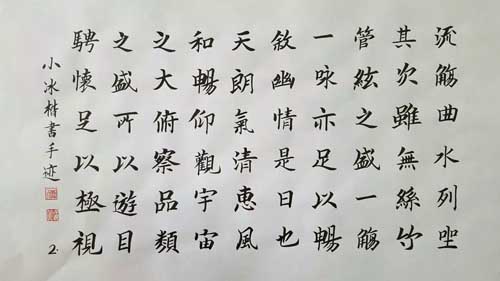 流觴曲水列坐
其次雖無絲竹
管絃之盛一觴
一咏亦足以暢
敘幽情是日也
天朗氣清恵風
和暢仰觀宇宙
之大俯察品類
之盛所以遊目
騁懷足以極視
小冰楷書手迹
2.